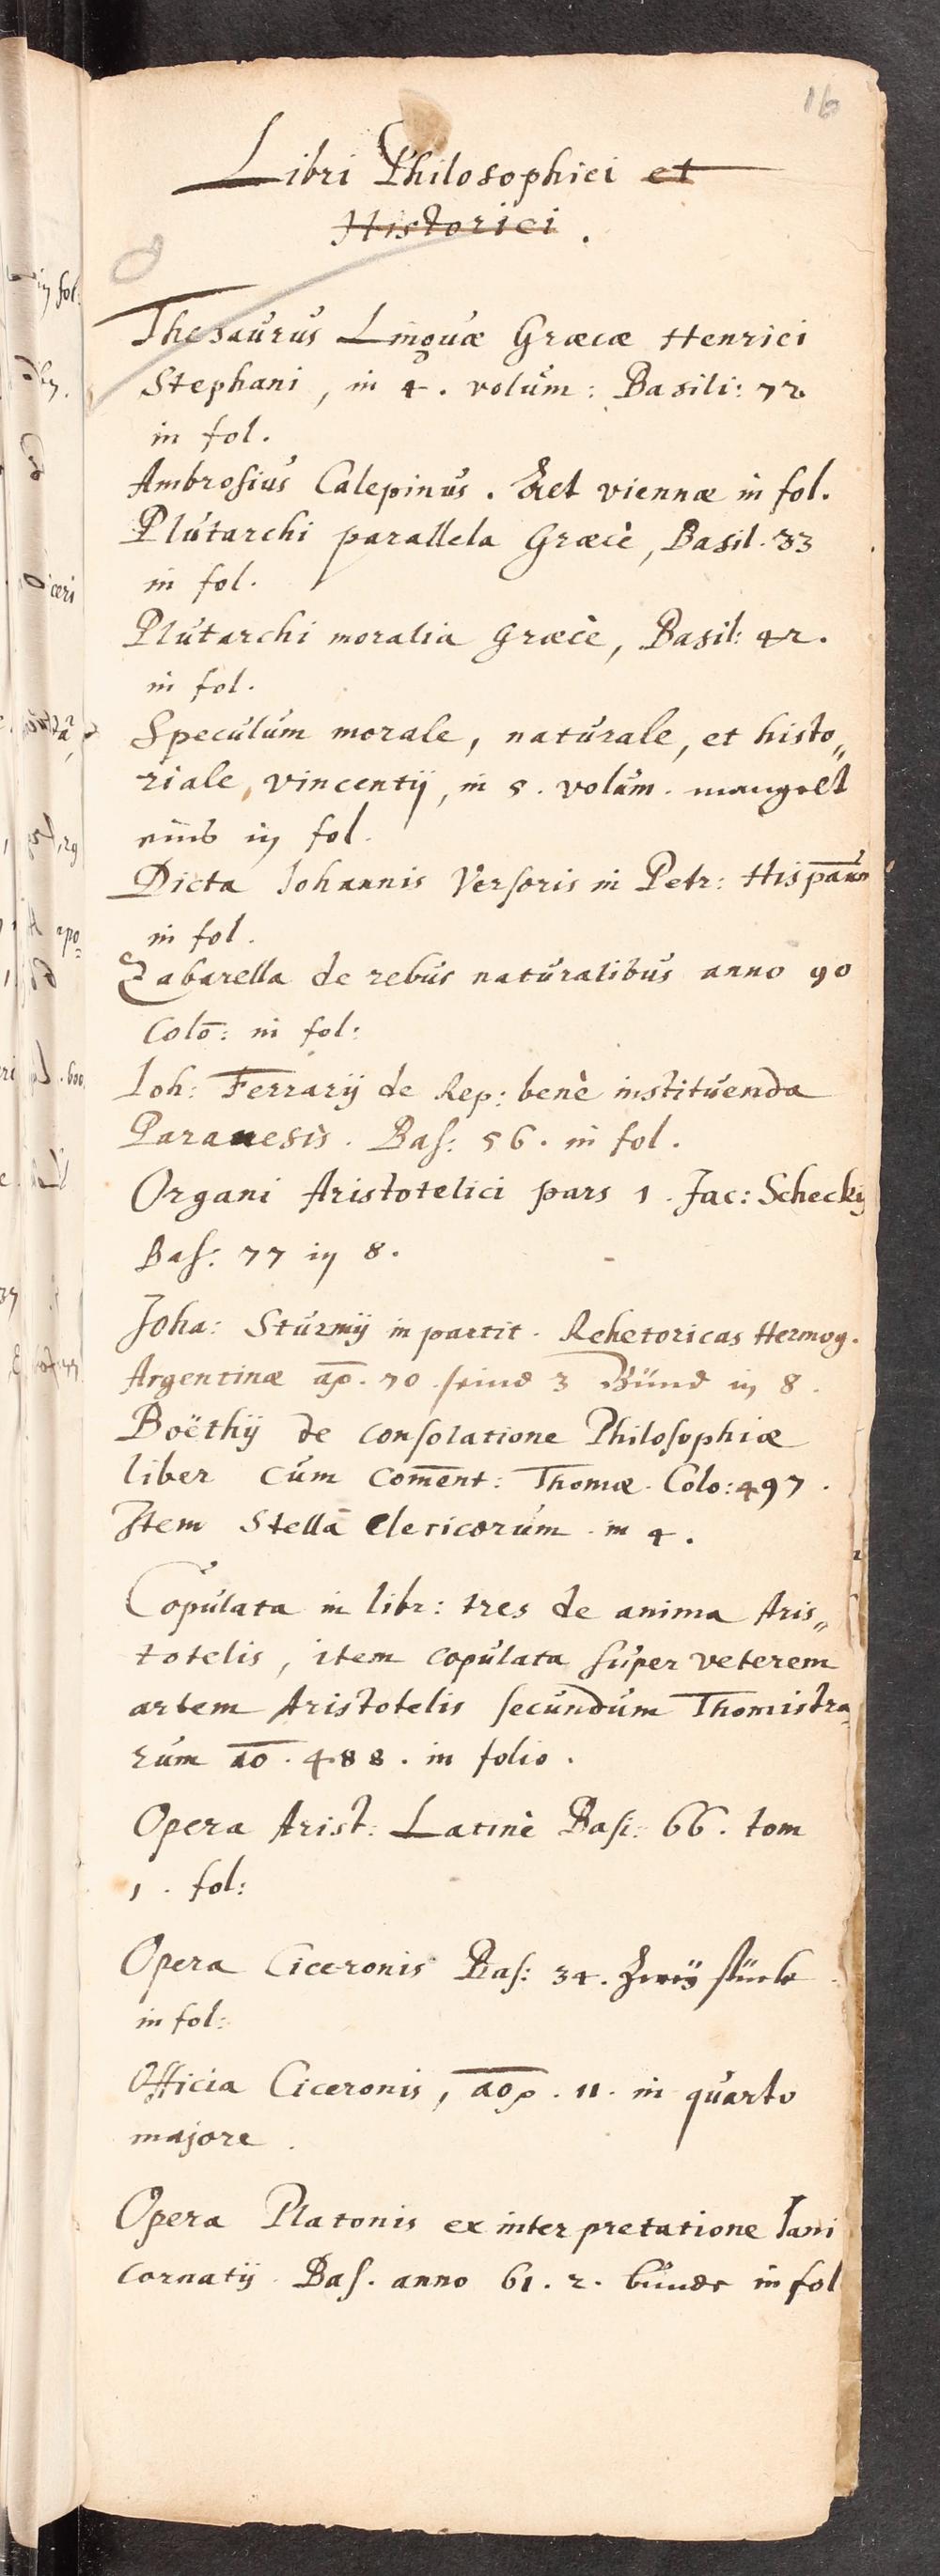 16
Libri Philosophici et
Historici .
Thesaurus Linguæ Græcæ Henrici
Stephani, in 4. volum: Basili: 72
in fol.
Ambrosius Calepinus. viennæ in fol.
Plutarchi parallela Græcè, Basil. 33
in fol.
Plutarchi moralia Græcè, Basil: 42.
in fol.
Speculum morale, naturale, et histo„
riale, vincentij, in 5. volum. mangelt
eins in fol.
Dicta Iohannis Versoris in Petr: Hispanū
in fol.
Zabarella de rebus naturalibus anno 90
Colō: in fol:
Ioh: Ferrarij de Rep: benè instituenda
Parænesis. Bas: 56. in fol.
Organi Aristotelici pars 1. Jac: Scheckij
Bas: 77 in 8.
Joha: Sturmij in partit. Rehetoricas Hermog.
Argentinæ ao. 70. seind 3 Bünd in 8.
Boëthij de consolatione Philosophiæ
liber cum com̄ent: Thomæ. Colo: 497.
Item Stellā Clericorum in 4.
Copulata in libr: tres de anima Aris„
totelis, item copulata super veterem
artem Aristotelis secundum Thomistra„
rum ao. 488. in folio.
Opera Arist: Latinè Basi: 66. tom
1. fol:
Opera Ciceronis Bas: 34. Zwey stück
in fol:
Officia Ciceronis, ao. 11. in quarto
majore.
Opera Platonis ex interpretatione Iani
Cornarij Bas. anno 61. 2. bünde in fol